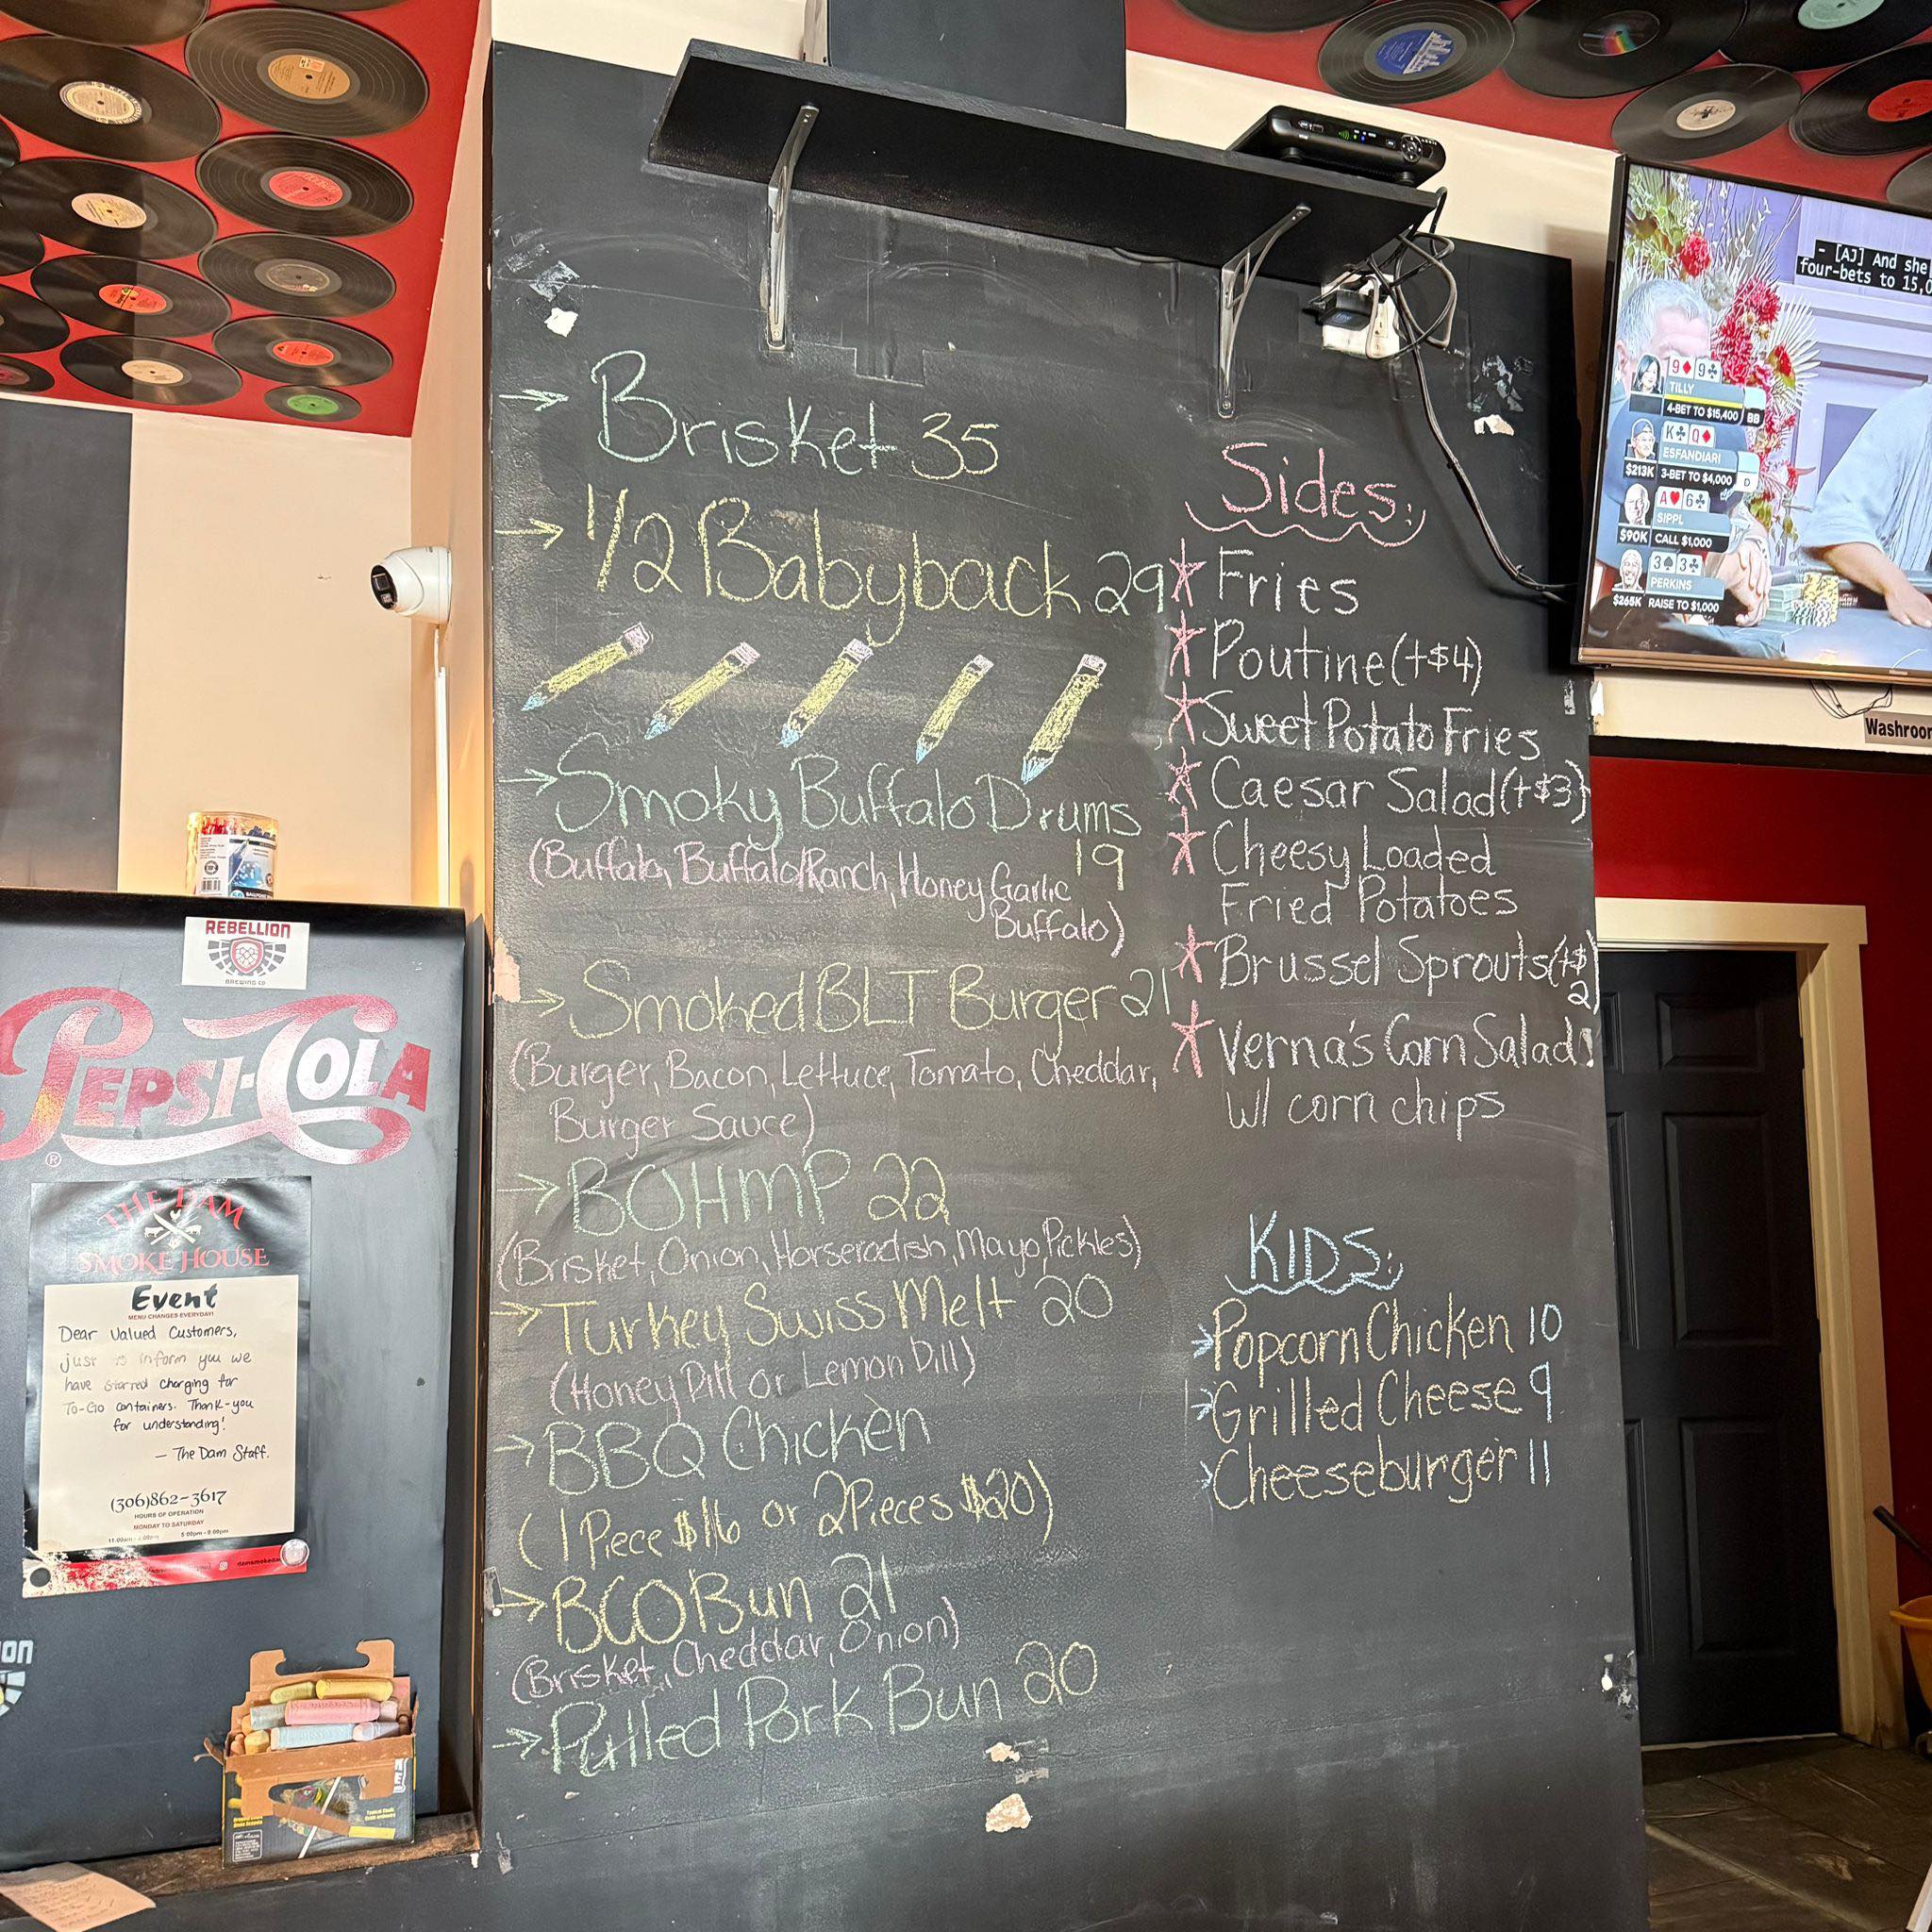 Brisket 35
1/2 Babyback 29
Smoky Buffalo Drums
19
(Buffalo, Buffalo/Ranch, Honey Garlic
Buffalo)
Smoked BLT Burger 21
(Burger, Bacon, Lettuce, Tomato, Cheddar,
Burger Sauce)
BOHMP 22
(Brisket, Onion, Horseradish, Mayo, Pickles)
Turkey Swiss Melt 20
(Honey Dill or Lemon Dill)
BBQ Chicken
(1 Piece $16 or 2 Pieces $20)
BCO Bun 21
(Brisket, Cheddar, Onion)
Pulled Pork Bun 20
Sides:
Fries
Poutine (+$4)
Sweet Potato Fries
Caesar Salad (+$3)
Cheesy Loaded
Fried Potatoes
Brussel Sprouts (+$
2)
Verna's Corn Salad
w/ corn chips
KIDS:
Popcorn Chicken 10
Grilled Cheese 9
Cheeseburger 11
REBELLION
BREWING CO
PEPSI-COLA
THE DAM
SMOKE HOUSE
Event
MENU CHANGES EVERYDAY!
Dear Valued Customers,
just to inform you we
have started charging for
To-Go containers. Thank-you
for understanding!
— The Dam Staff.
(306)862-3617
HOURS OF OPERATION
MONDAY TO SATURDAY
5:00pm - 9:00pm
- [AJ] And she
four-bets to 15,0
9♦ 9♣
TILLY
4-BET TO $15,400 BB
K♣ Q♦
ESFANDIARI
$213K 3-BET TO $4,000 D
A♥ 6♣
SIPPL
$90K CALL $1,000
3♠ 3♣
PERKINS
$265K RAISE TO $1,000
Washroom